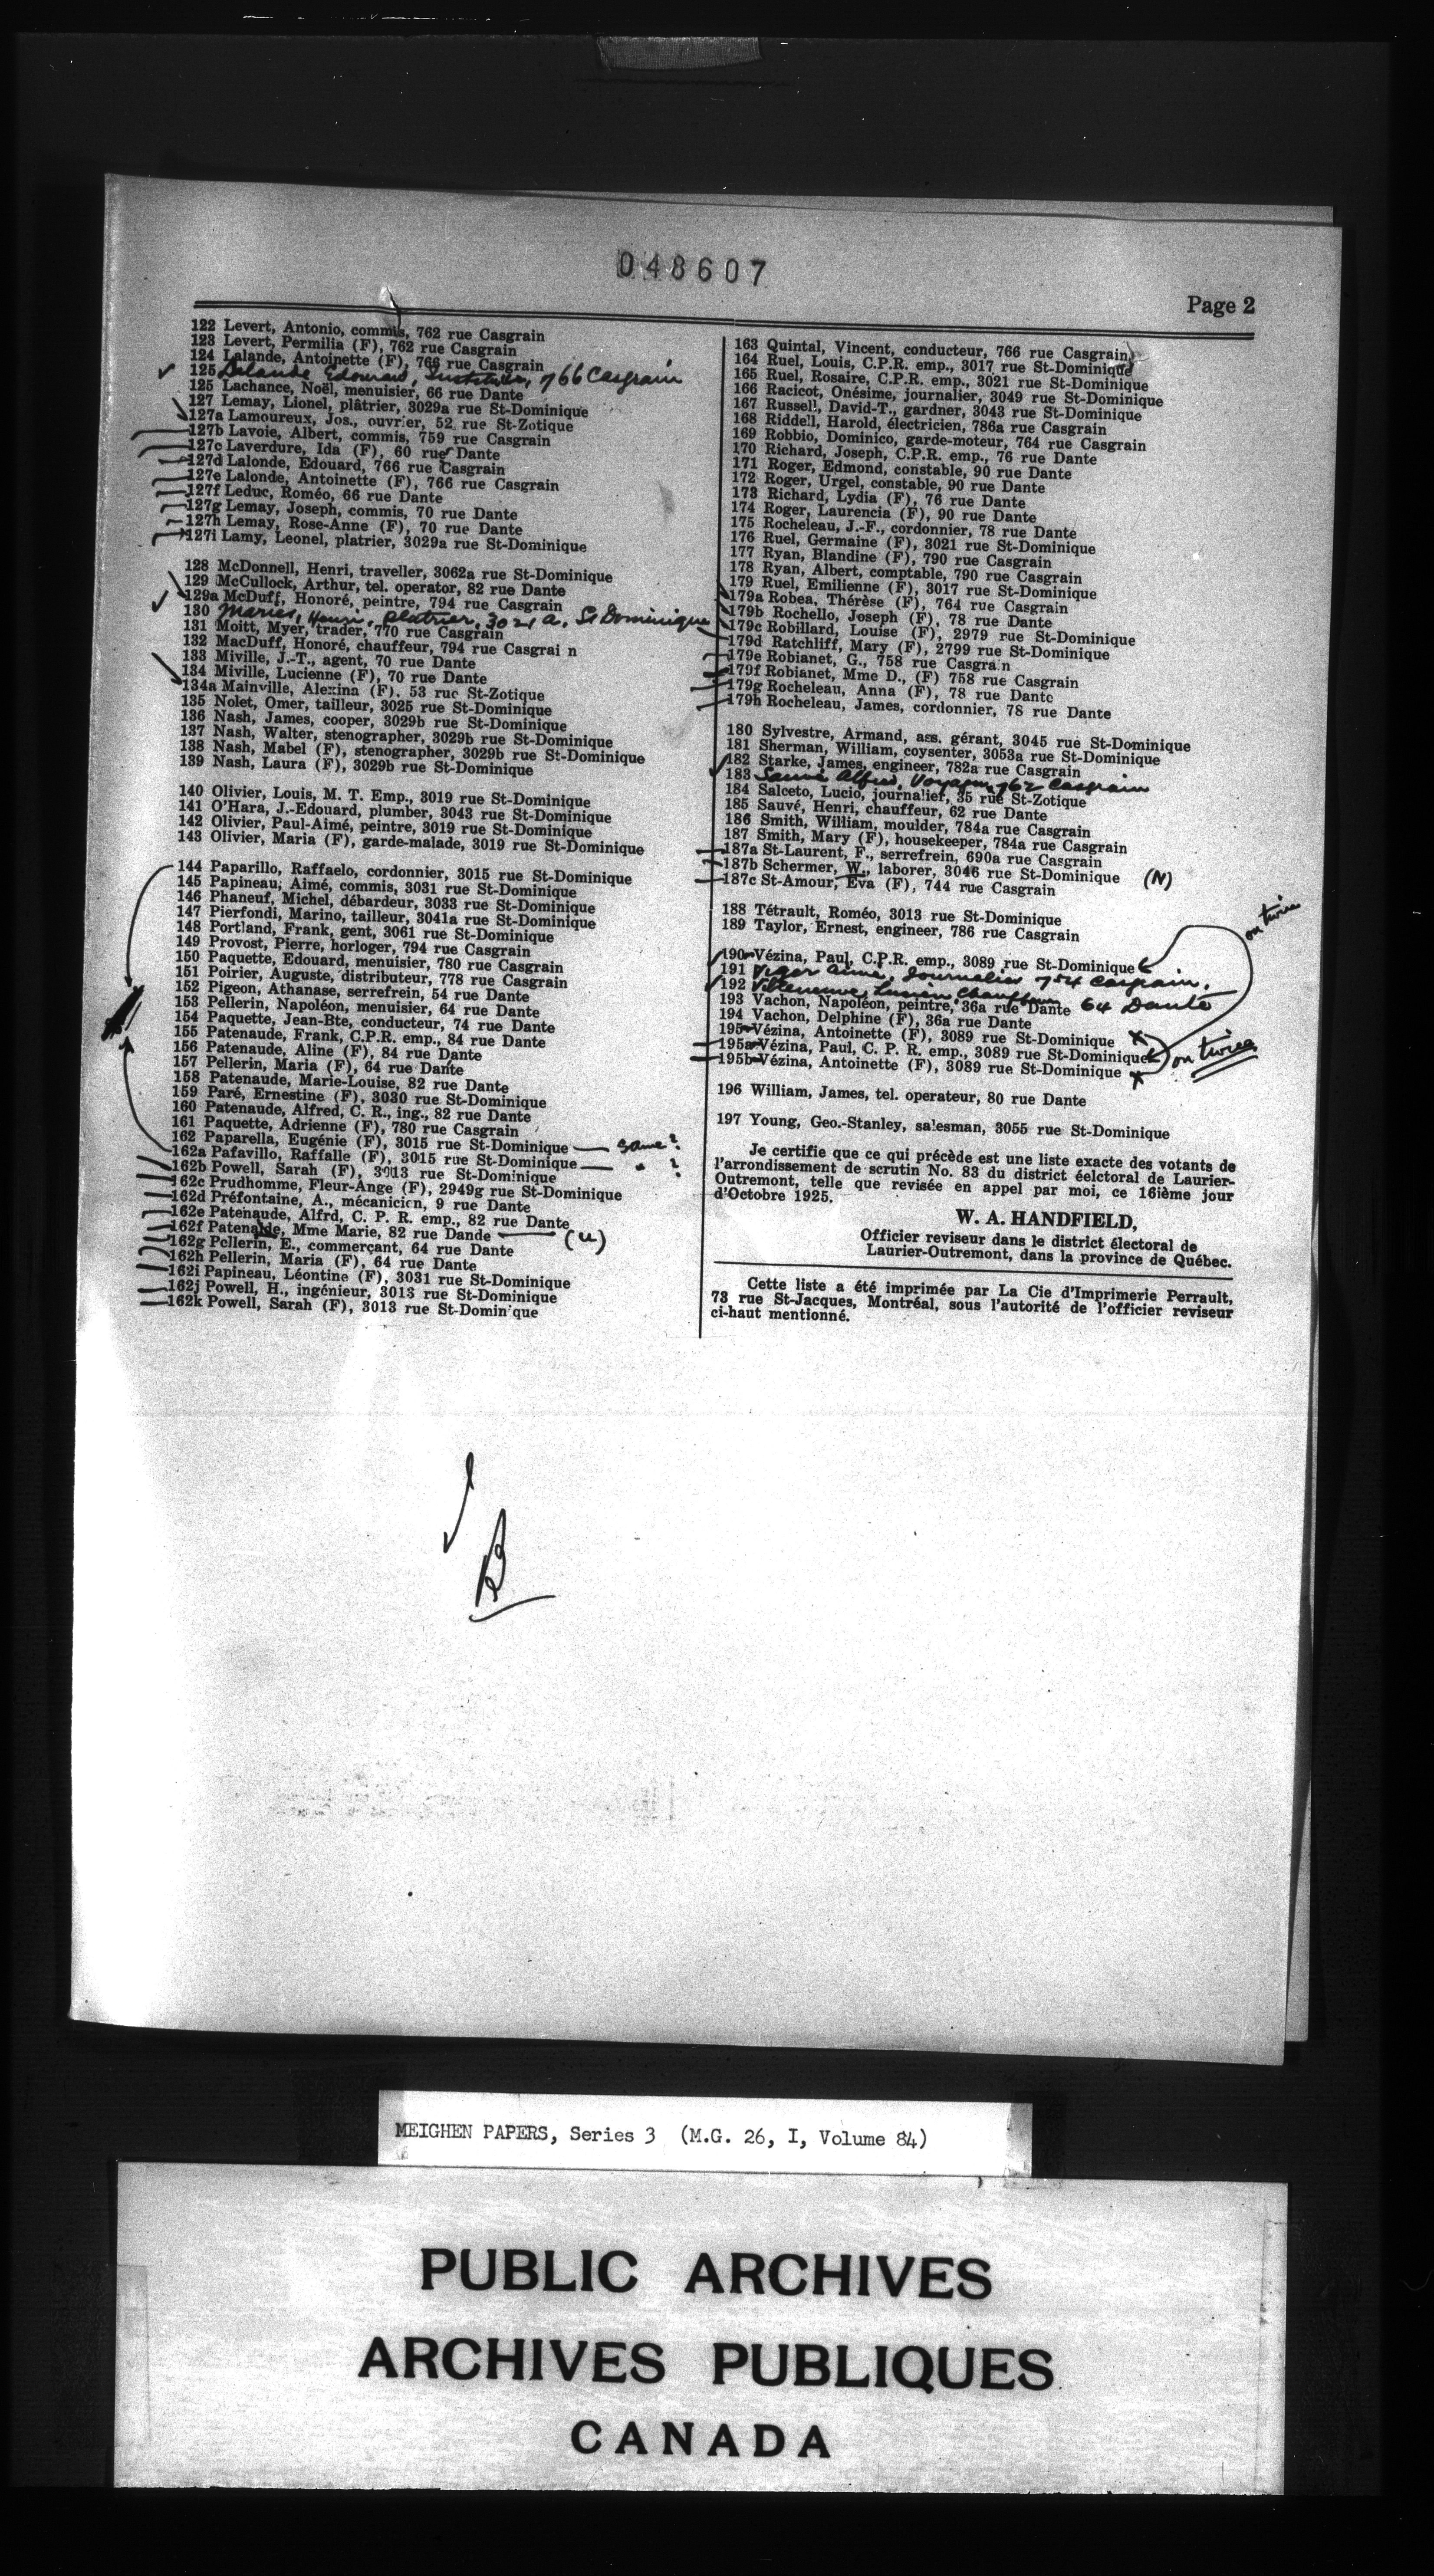 048607
Page 2
122 Levert, Antonio, commis, 762 rue Casgrain
123 Levert, Permilia (F), 762 rue Casgrain
124 Lalande, Antoinette (F), 766 rue Casgrain
125 Lalande Edouard, 766 Casgrain
125 Lachance, Noël, menuisier, 66 rue Dante
127 Lemay, Lionel, plâtrier, 3029a rue St-Dominique
127a Lamoureux, Jos., ouvrier, 52 rue St-Zotique
127b Lavoie, Albert, commis, 759 rue Casgrain
127c Laverdure, Ida (F), 60 rue Dante
127d Lalonde, Edouard, 766 rue Casgrain
127e Lalonde, Antoinette (F), 766 rue Casgrain
127f Leduc, Roméo, 66 rue Dante
127g Lemay, Joseph, commis, 70 rue Dante
127h Lemay, Rose-Anne (F), 70 rue Dante
127i Lamy, Leonel, platrier, 3029a rue St-Dominique
128 McDonnell, Henri, traveller, 3062a rue St-Dominique
129 McCullock, Arthur, tel. operator, 82 rue Dante
129a McDuff, Honoré, peintre, 794 rue Casgrain
130 Henri, platrier, 3021 a, St Dominique
131 Moitt, Myer, trader, 770 rue Casgrain
132 MacDuff, Honoré, chauffeur, 794 rue Casgrai n
133 Miville, J.-T., agent, 70 rue Dante
134 Miville, Lucienne (F), 70 rue Dante
134a Mainville, Alexina (F), 53 rue St-Zotique
135 Nolet, Omer, tailleur, 3025 rue St-Dominique
136 Nash, James, cooper, 3029b rue St-Dominique
137 Nash, Walter, stenographer, 3029b rue St-Dominique
138 Nash, Mabel (F), stenographer, 3029b rue St-Dominique
139 Nash, Laura (F), 3029b rue St-Dominique
140 Olivier, Louis, M. T. Emp., 3019 rue St-Dominique
141 O'Hara, J.-Edouard, plumber, 3043 rue St-Dominique
142 Olivier, Paul-Aimé, peintre, 3019 rue St-Dominique
143 Olivier, Maria (F), garde-malade, 3019 rue St-Dominique
144 Paparillo, Raffaelo, cordonnier, 3015 rue St-Dominique
145 Papineau, Aimé, commis, 3031 rue St-Dominique
146 Phaneuf, Michel, débardeur, 3033 rue St-Dominique
147 Pierfondi, Marino, tailleur, 3041a rue St-Dominique
148 Portland, Frank, gent, 3061 rue St-Dominique
149 Provost, Pierre, horloger, 794 rue Casgrain
150 Paquette, Edouard, menuisier, 780 rue Casgrain
151 Poirier, Auguste, distributeur, 778 rue Casgrain
152 Pigeon, Athanase, serrefrein, 54 rue Dante
153 Pellerin, Napoléon, menuisier, 64 rue Dante
154 Paquette, Jean-Bte, conducteur, 74 rue Dante
155 Patenaude, Frank, C.P.R. emp., 84 rue Dante
156 Patenaude, Aline (F), 84 rue Dante
157 Pellerin, Maria (F), 64 rue Dante
158 Patenaude, Marie-Louise, 82 rue Dante
159 Paré, Ernestine (F), 3030 rue St-Dominique
160 Patenaude, Alfred, C. R., ing., 82 rue Dante
161 Paquette, Adrienne (F), 780 rue Casgrain
162 Paparella, Eugénie (F), 3015 rue St-Dominique — same?
162a Pafavillo, Raffalle (F), 3015 rue St-Dominique — " ?
162b Powell, Sarah (F), 3013 rue St-Dominique
162c Prudhomme, Fleur-Ange (F), 2949g rue St-Dominique
162d Préfontaine, A., mécanicien, 9 rue Dante
162e Patenaude, Alfrd, C. P. R. emp., 82 rue Dante
162f Patenaude, Mme Marie, 82 rue Dande — (u)
162g Pellerin, E., commerçant, 64 rue Dante
162h Pellerin, Maria (F), 64 rue Dante
162i Papineau, Léontine (F), 3031 rue St-Dominique
162j Powell, H., ingénieur, 3013 rue St-Dominique
162k Powell, Sarah (F), 3013 rue St-Dominique
163 Quintal, Vincent, conducteur, 766 rue Casgrain
164 Ruel, Louis, C.P.R. emp., 3017 rue St-Dominique
165 Ruel, Rosaire, C.P.R. emp., 3021 rue St-Dominique
166 Racicot, Onésime, journalier, 3049 rue St-Dominique
167 Russell, David-T., gardner, 3043 rue St-Dominique
168 Riddell, Harold, électricien, 786a rue Casgrain
169 Robbio, Dominico, garde-moteur, 764 rue Casgrain
170 Richard, Joseph, C.P.R. emp., 76 rue Dante
171 Roger, Edmond, constable, 90 rue Dante
172 Roger, Urgel, constable, 90 rue Dante
173 Richard, Lydia (F), 76 rue Dante
174 Roger, Laurencia (F), 90 rue Dante
175 Rocheleau, J.-F., cordonnier, 78 rue Dante
176 Ruel, Germaine (F), 3021 rue St-Dominique
177 Ryan, Blandine (F), 790 rue Casgrain
178 Ryan, Albert, comptable, 790 rue Casgrain
179 Ruel, Emilienne (F), 3017 rue St-Dominique
179a Robea, Thérèse (F), 764 rue Casgrain
179b Rochello, Joseph (F), 78 rue Dante
179c Robillard, Louise (F), 2979 rue St-Dominique
179d Ratchliff, Mary (F), 2799 rue St-Dominique
179e Robianet, G., 758 rue Casgrain
179f Robianet, Mme D., (F) 758 rue Casgrain
179g Rocheleau, Anna (F), 78 rue Dante
179h Rocheleau, James, cordonnier, 78 rue Dante
180 Sylvestre, Armand, ass. gérant, 3045 rue St-Dominique
181 Sherman, William, coysenter, 3053a rue St-Dominique
182 Starke, James, engineer, 782a rue Casgrain
183 Sauvé Alfred, Voyageur, 762 Casgrain
184 Salceto, Lucio, journalief, 35 rue St-Zotique
185 Sauvé, Henri, chauffeur, 62 rue Dante
186 Smith, William, moulder, 784a rue Casgrain
187 Smith, Mary (F), housekeeper, 784a rue Casgrain
187a St-Laurent, F., serrefrein, 690a rue Casgrain
187b Schermer, W., laborer, 3046 rue St-Dominique (N)
187c St-Amour, Eva (F), 744 rue Casgrain
188 Tétrault, Roméo, 3013 rue St-Dominique
189 Taylor, Ernest, engineer, 786 rue Casgrain
on twice
190 Vézina, Paul, C.P.R. emp., 3089 rue St-Dominique
191 Viger Aimé, Journalier 754 Casgrain.
192 Villeneuve, Lucien, 64 Dante
193 Vachon, Napoléon, peintre, 36a rue Dante
194 Vachon, Delphine (F), 36a rue Dante
195 Vézina, Antoinette (F), 3089 rue St-Dominique x
195a Vézina, Paul, C. P. R. emp., 3089 rue St-Dominique on twice
195b Vézina, Antoinette (F), 3089 rue St-Dominique x
196 William, James, tel. operateur, 80 rue Dante
197 Young, Geo.-Stanley, salesman, 3055 rue St-Dominique
Je certifie que ce qui précède est une liste exacte des votants de
l'arrondissement de scrutin No. 83 du district éelctoral de Laurier-
Outremont, telle que revisée en appel par moi, ce 16ième jour
d'Octobre 1925.
W. A. HANDFIELD,
Officier reviseur dans le district électoral de
Laurier-Outremont, dans la province de Québec.
Cette liste a été imprimée par La Cie d'Imprimerie Perrault,
73 rue St-Jacques, Montréal, sous l'autorité de l'officier reviseur
ci-haut mentionné.
B
MEIGHEN PAPERS, Series 3 (M.G. 26, I, Volume 84)
PUBLIC ARCHIVES
ARCHIVES PUBLIQUES
CANADA